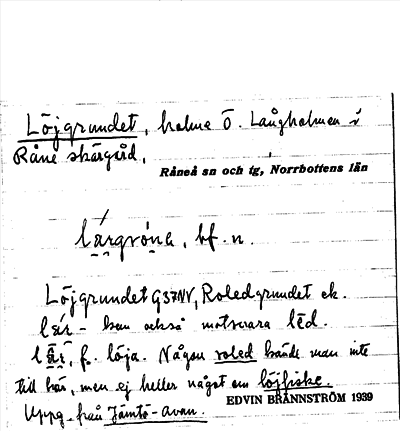 Löjgrundet, holme Ö. Långholmen i
Råne skärgård.
Råneå sn och tg, Norrbottens län
lärgróna, bf. n.
Löjgrundet G37NV, Roledgrundet ek.
lä́r - kan också motsvara lēd.
lǟr, f. löja. Någon roled hörde man inte
till här, men ej heller något om löjfiske.
Uppg. från Jämtö-Avan.
EDVIN BRÄNNSTRÖM 1939